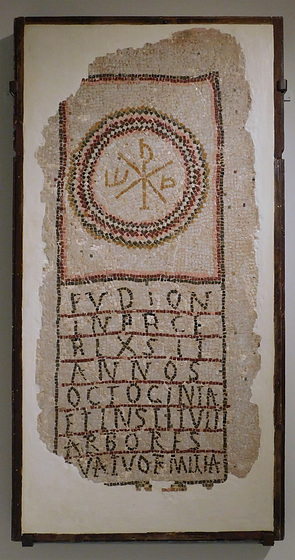 DION
IN PACE
BIXSIT
ANNOS
OCTOGINTA
ET INSTITVIT
ARBORES
QVATVOR MILIA